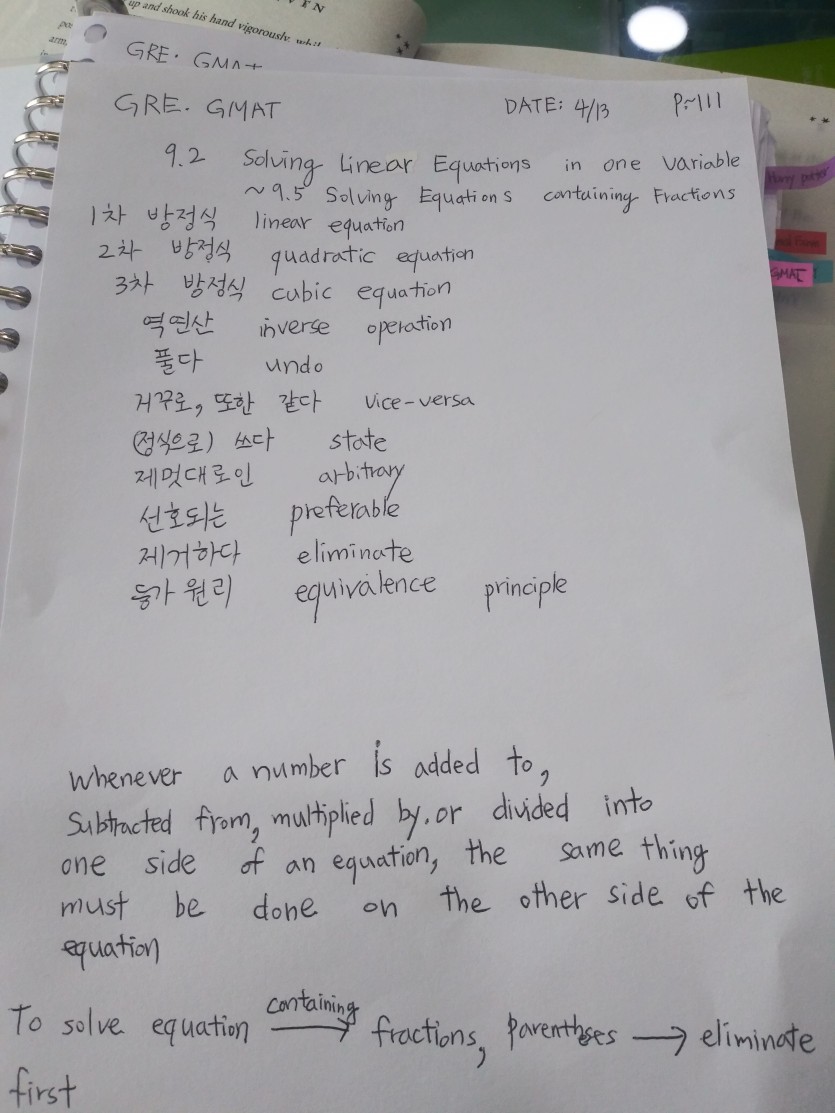 up and shook his hand vigorously,
GRE. GMAT
GRE. GMAT DATE: 4/13 P.~111
9.2 Solving Linear Equations in one variable
~9.5 Solving Equations containing Fractions
1차 방정식 linear equation
2차 방정식 quadratic equation
3차 방정식 cubic equation
역연산 inverse operation
풀다 undo
거꾸로, 또한 같다 vice-versa
(정식으로) 쓰다 state
제멋대로인 arbitrary
선호되는 preferable
제거하다 eliminate
등가 원리 equivalence principle
Whenever a number is added to,
Subtracted from, multiplied by, or divided into
one side of an equation, the same thing
must be done on the other side of the
equation
containing
To solve equation → fractions, parentheses → eliminate
first
Harry potter
GMAT